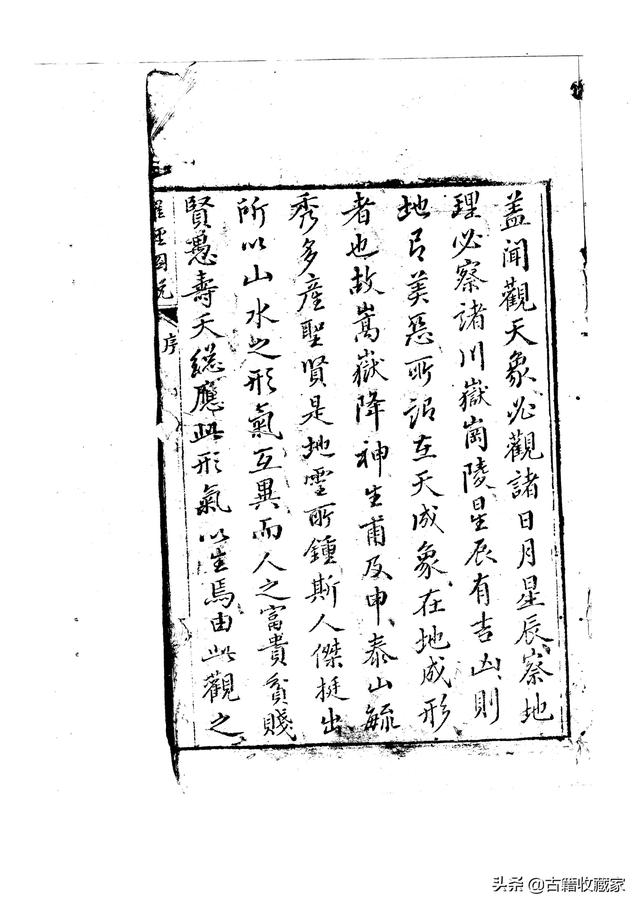 蓋聞觀天象必觀諸日月星辰察地
理必察諸川嶽崗陵星辰有吉凶則
地有美惡所謂在天成象在地成形
者也故嵩嶽降神生甫及申泰山毓
秀多產聖賢是地靈所鍾斯人傑挺出
所以山水之形氣互異而人之富貴貧賤
賢愚壽夭總應此形氣以生焉由此觀之
羅經圖說
序
头条@古籍收藏家